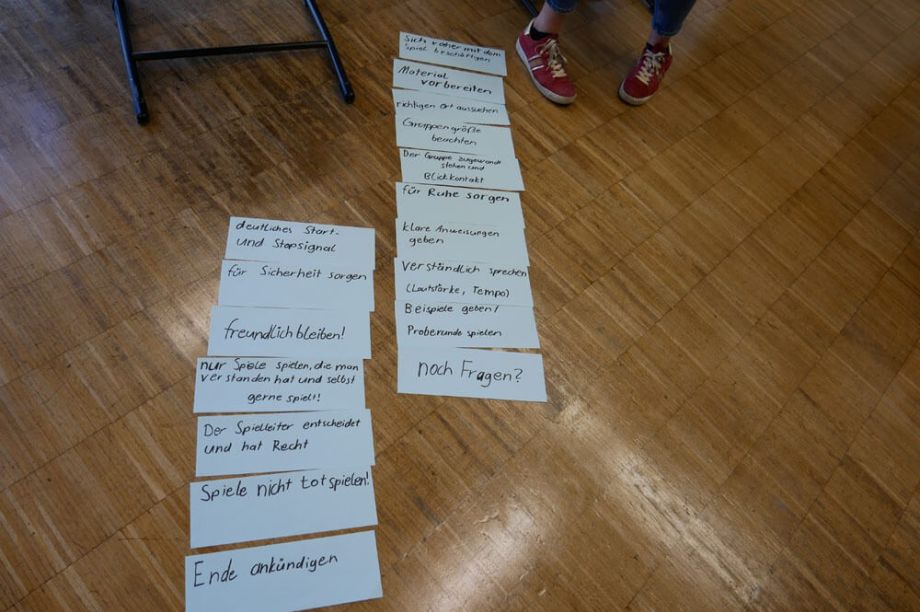 Sich vorher mit dem
Spiel beschäftigen
Material
vorbereiten
richtigen Ort aussuchen
Gruppengröße
beachten
Der Gruppe zugewandt
stehen und
Blickkontakt
für Ruhe sorgen
klare Anweisungen
geben
verständlich sprechen
(Lautstärke, Tempo)
Beispiele geben/
Proberunde spielen
noch Fragen?
deutliches Start-
und Stopsignal
für Sicherheit sorgen
freundlich bleiben!
nur Spiele spielen, die man
verstanden hat und selbst
gerne spielt!
Der Spielleiter entscheidet
und hat Recht
Spiele nicht totspielen!
Ende ankündigen